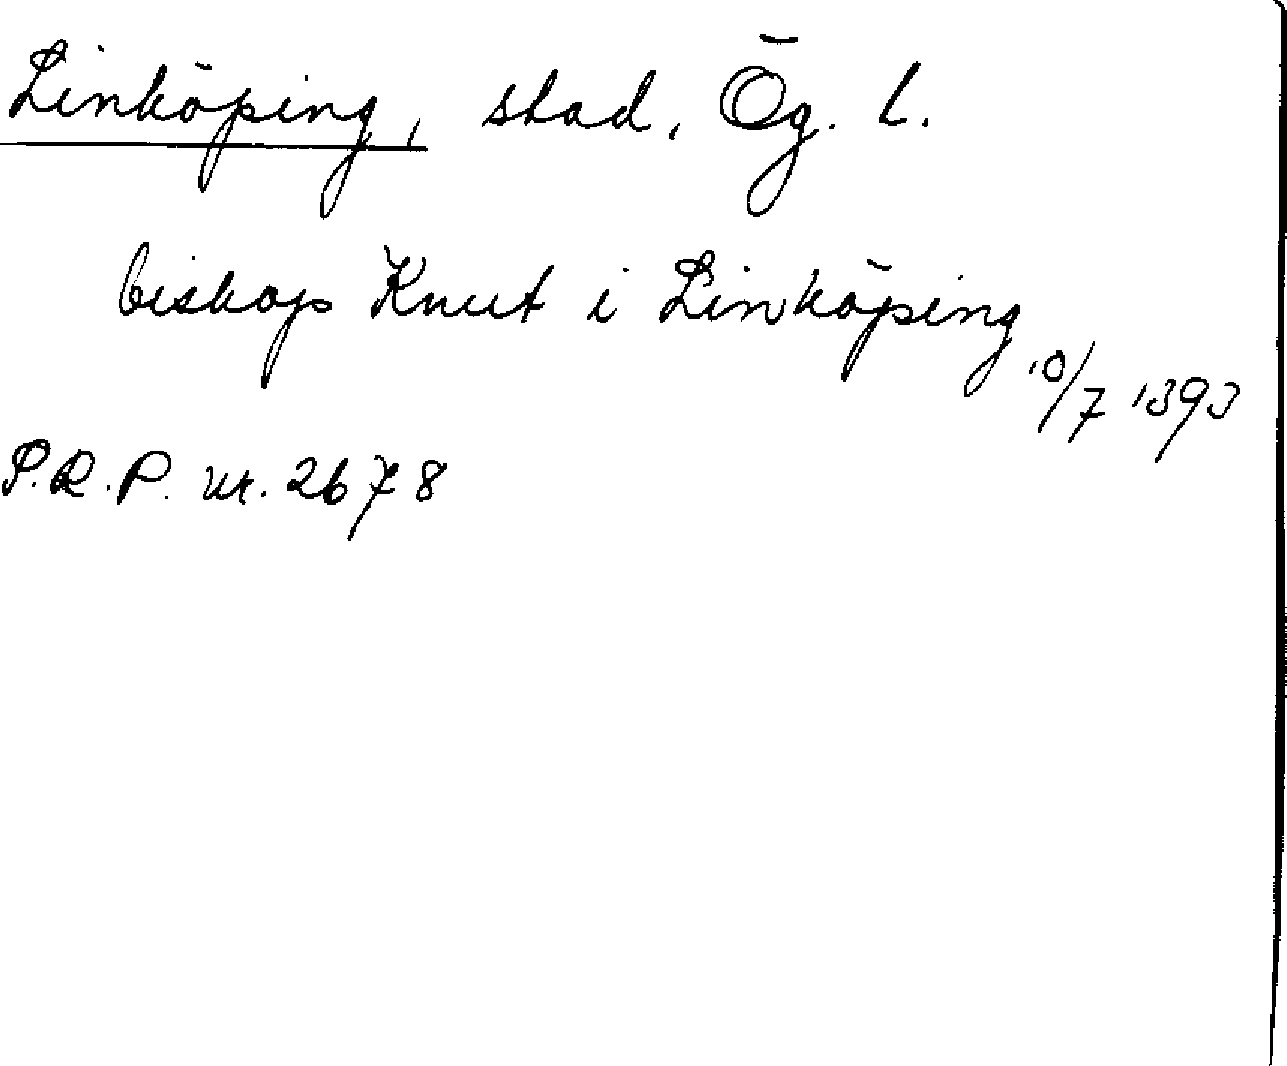 Linköping, stad, Ög. l.
biskop Knut i Linköping
10/7 1393
P.R.P. nr. 2678